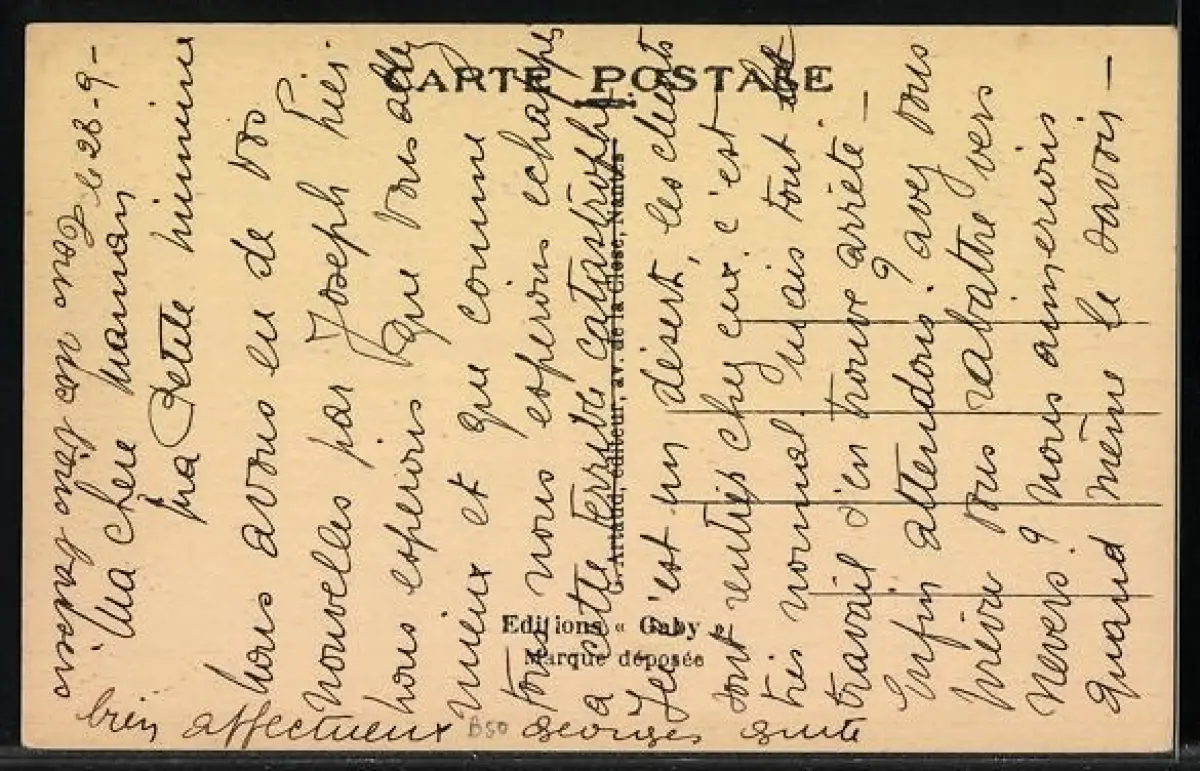 CARTE POSTALE
G. Artaud, éditeur, av. de la Close, Nantes
Editions « Gaby »
Marque déposée
le 28-9-
Ma chère maman
ma petite mimine
nous avons eu de vos
nouvelles par Joseph hier
nous esperons que vous allez
mieux et que comme
tous nous esperons echappes
a cette terrible catastrophe
Ici c'est un désert, les clients
sont rentres chez eux. c'est
très normal, mais tout est
travail s'en trouve arrêté -
Enfin attendons ! avez vous
prévu vous rabattre vers
Nevers ? nous aimerions
quand même le savoir -
Tous nos bons baisers
bien affectueux Georges
B50